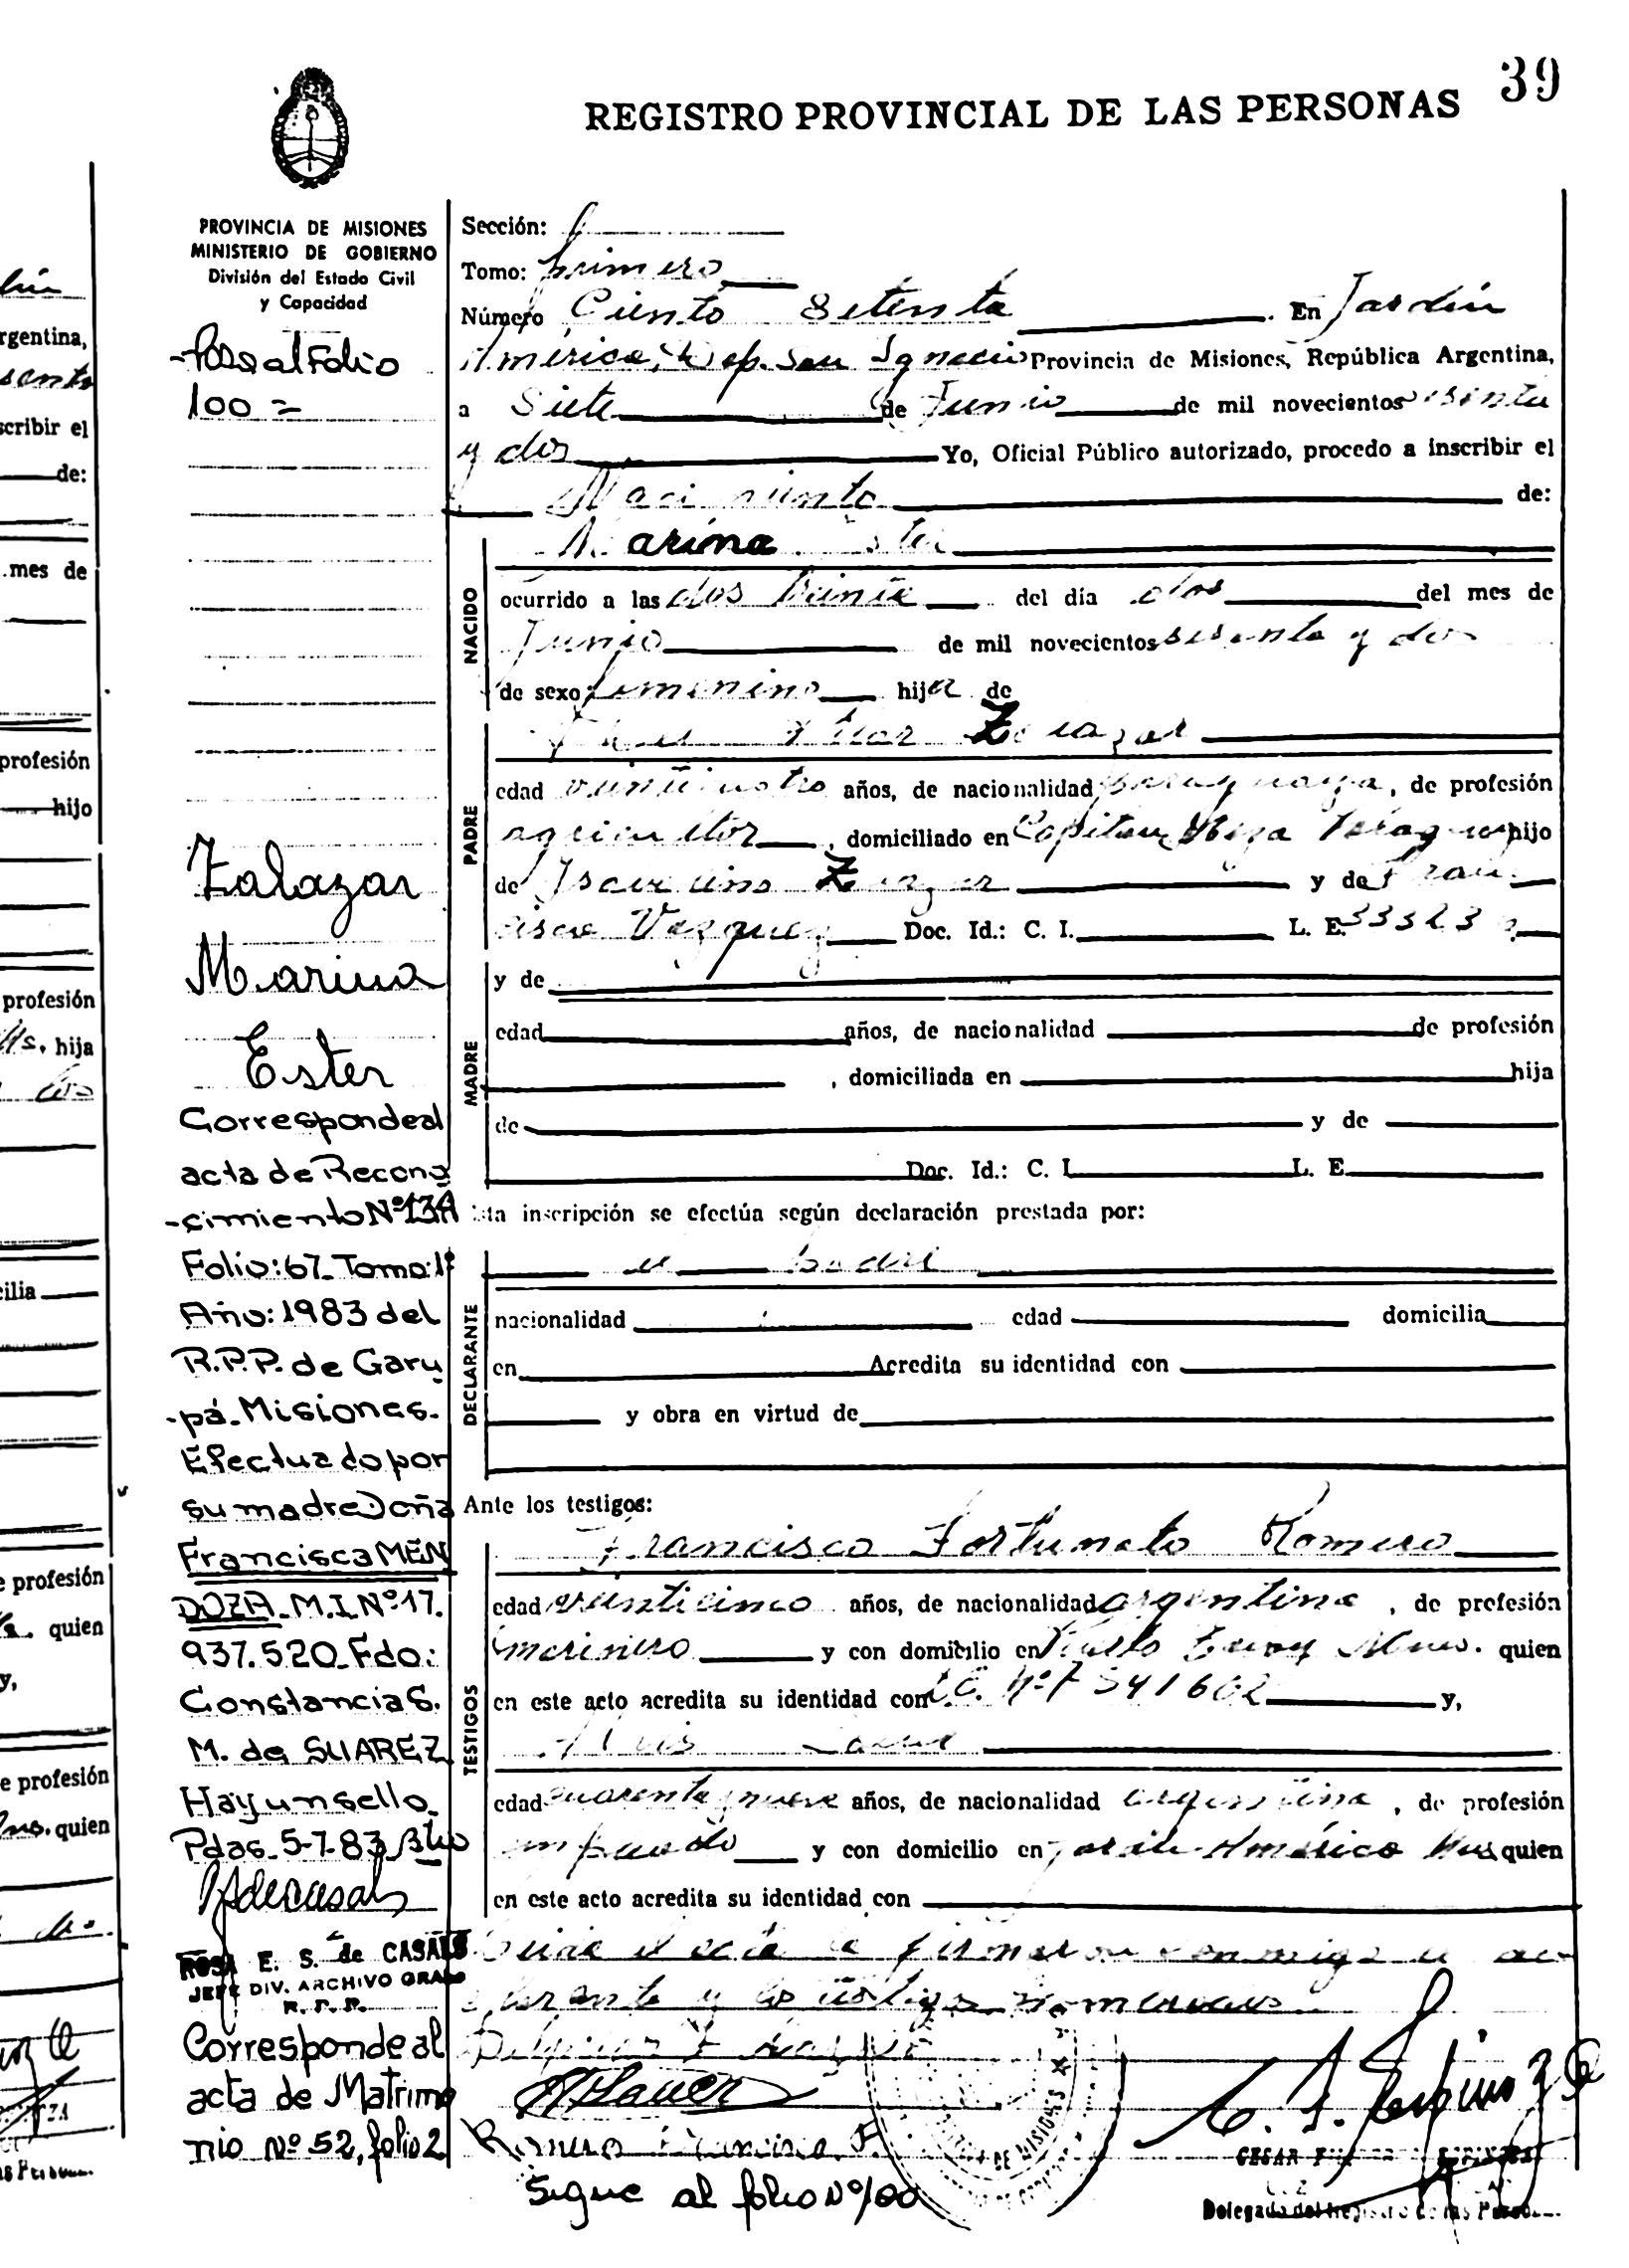 39
REGISTRO PROVINCIAL DE LAS PERSONAS
PROVINCIA DE MISIONES
MINISTERIO DE GOBIERNO
División del Estado Civil
y Capacidad
-Pase al Folio
100=
Zalazar
Marina
Ester
Corresponde al
acta de Recono
-cimiento Nº134
Folio:67_Tomo:1º
Año:1983 del
R.P.P. de Garu
-pá_Misiones.
Efectuado por
su madre Doña
Francisca MEN
DOZA_M.I Nº17.
937.520_Fdo:
Constancia S.
M. de SUAREZ
Hay un sello_
Pdas_5-7-83
ROSA E. S. de CASALS
JEFE DIV. ARCHIVO GRAL
R. P. P.
Corresponde al
acta de Matrimo
nio Nº 52, folio 2
Sección:
Tomo: primero
Número Ciento Setenta . En Jardín
América, Dep. San Ignacio Provincia de Misiones, República Argentina,
a Siete de Junio de mil novecientos sesenta
y dos Yo, Oficial Público autorizado, procedo a inscribir el
Nacimiento de:
Marina Ester
NACIDO
ocurrido a las dos veinte del día dos del mes de
Junio de mil novecientos sesenta y dos
de sexo femenino hija de
Zalazar
PADRE
edad años, de nacionalidad paraguaya, de profesión
agricultor, domiciliado en Capitan Meza Paraguay hijo
de Zalazar y de Fran
cisca Vazquez Doc. Id.: C. I. L. E.
MADRE
y de
edad años, de nacionalidad de profesión
, domiciliada en hija
de y de
Doc. Id.: C. I. L. E.
Esta inscripción se efectúa según declaración prestada por:
DECLARANTE
el padre
nacionalidad edad domicilia
en Acredita su identidad con
y obra en virtud de
Ante los testigos:
TESTIGOS
Francisco Fortunato Romero
edad veinticinco años, de nacionalidad argentina, de profesión
marinero y con domicilio en quien
en este acto acredita su identidad con L.E. Nº 7541602 y,
edad cuarenta y nueve años, de nacionalidad argentina, de profesión
empleado y con domicilio en Jardín América Mns quien
en este acto acredita su identidad con
el acta la firmaron conmigo el de
clarante y los testigos
Romero Francisco F.
Sigue al folio Nº100
Delegado del Registro de las Personas
rgentina,
scribir el
de:
mes de
profesión
hijo
profesión
hija
cilia
e profesión
quien
y,
e profesión
quien